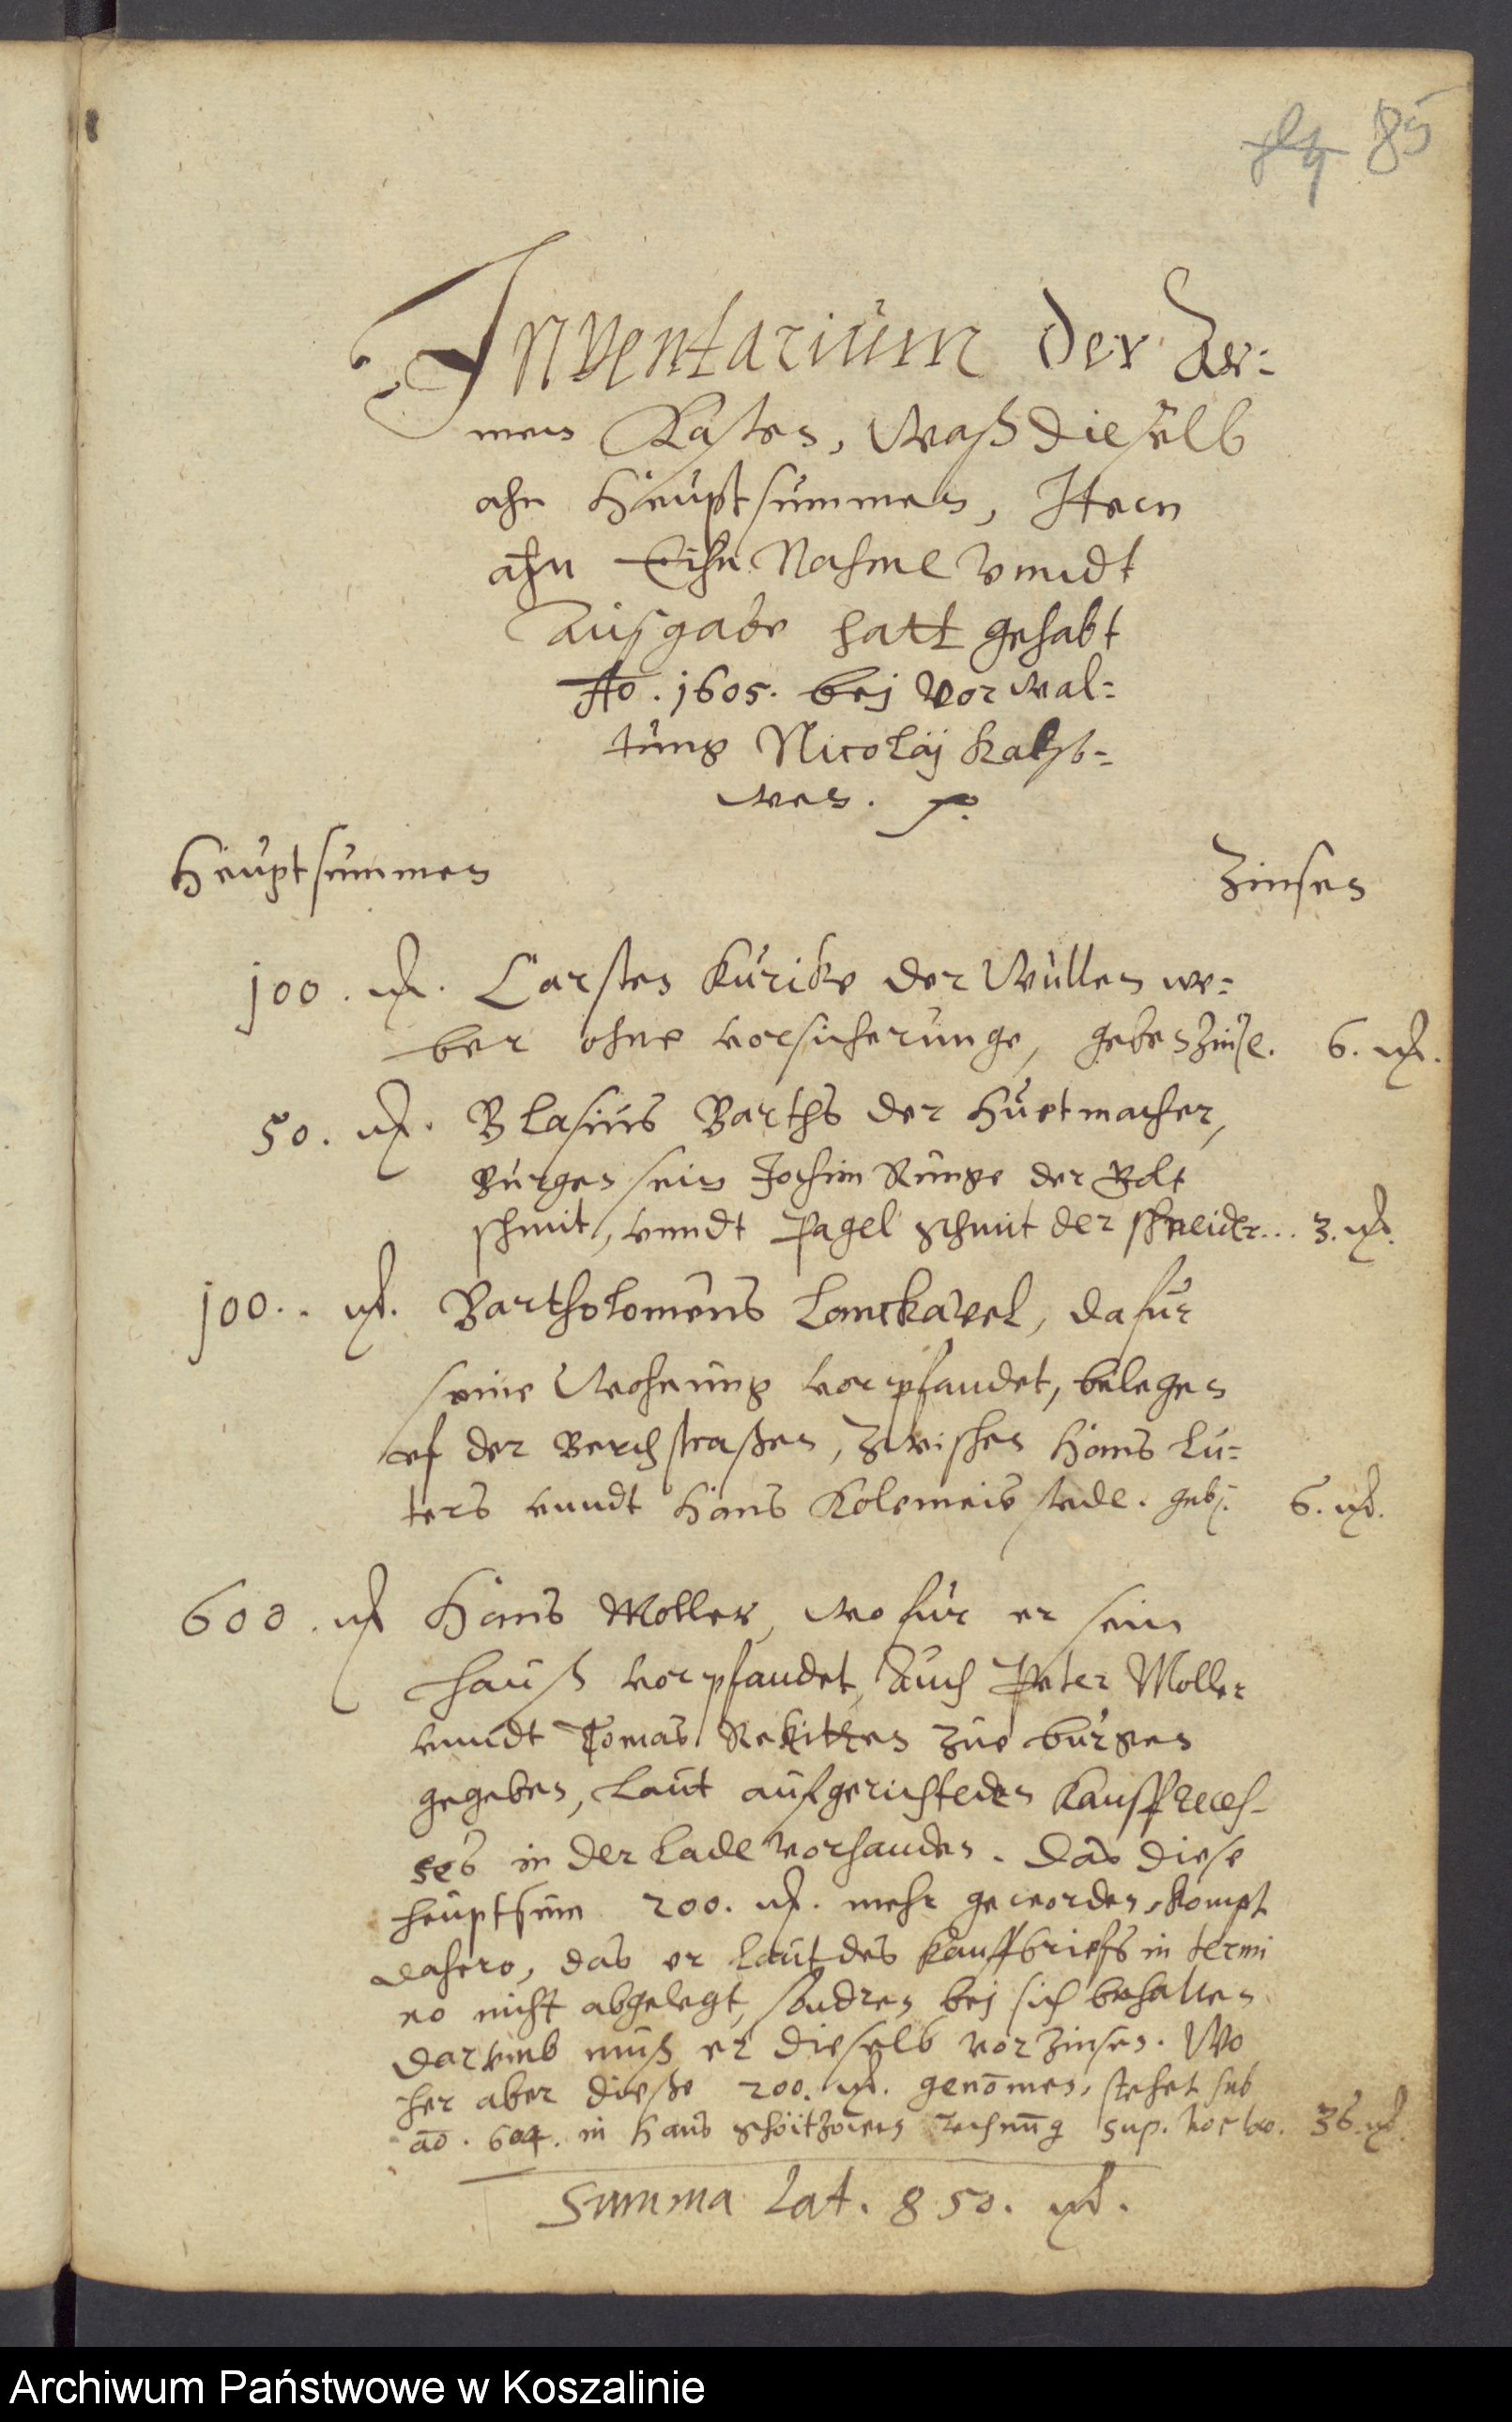 85
Inventarium der Ar-
men Kasten, Waß dieselb
ahn Heuptsummen, Item
ahn Einnahme vnndt
Außgabe hatt gehabt
Ao. 1605. bej Vorwal-
tung Nicolaj
wen.
Heuptsummen
Zinsen
100. mk. Carsten Kuricke der Wullen we-
ber ohne vorsicherunge, geben Zinse. 6. mk.
50. mk. Blasius Barths der Huetmacher,
Burgen sein Jochim Runge der Golt
schmit, vnndt Pagel Schmit der schneider... 3. mk.
100.. mk. Bartholomeus Lanckavel, dafur
seine Wohnung vorpfandet, belegen
vf der Berchstraßen, zwischen Hans Lu-
ters vnndt Hans stede. geb. 6. mk.
600. mk Hans Moller, wo fur er sein
hauß vorpfandet, Auch Peter Moller
vnndt Tomas zue burgen
gegeben, Laut aufgerichteden Kauffreces-
ses in der Lade vorhanden. Das diese
heuptsum 200. mk. mehr geworden, kompt
dahero, das er Laut des Kauffbriefs in termi
no nicht abgelegt, sondren bej sich behalten
darvmb muß er dieselb vorzinsen. Wo
her aber dieße 200. mk. genomen, stehet sub
ao. 604. in Hans rechnung sup. 36. mk.
Summa Lat. 850. mk.
Archiwum Państwowe w Koszalinie